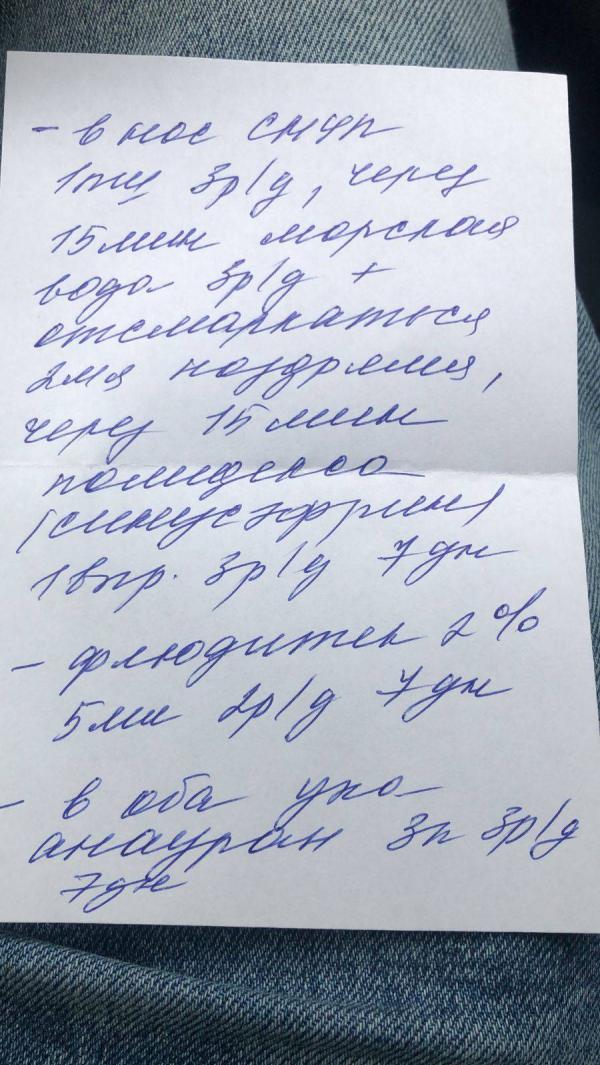 - в нос СНУП
1пш 3р/д, через
15мин морская
вода 3р/д +
отсмаркаться
2мя ноздрями,
через 15мин
полидекса
(синусэфрин)
1впр. 3р/д 7дн
- флюдитек 2%
5мл 2р/д 7дн
- в оба уха
анауран 3к 3р/д
7дн